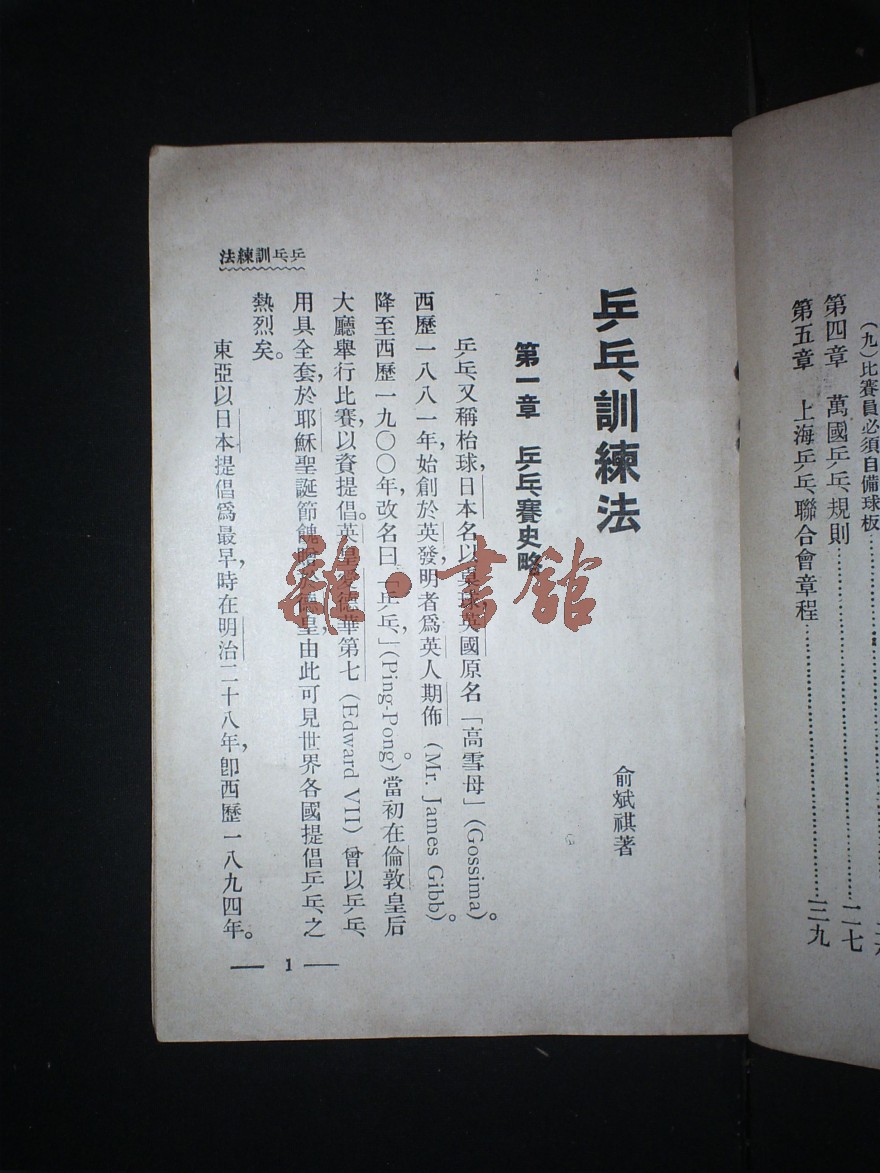 (九)比賽員必須自備球板
第四章 萬國乒乓規則……二七
第五章 上海乒乓聯合會章程……三九
乒乓訓練法
俞斌祺著
第一章 乒乓賽史略
乒乓,又稱枱球,日本名以桌球,英國原名「高雪母」(Gossima)。
西歷一八八一年,始創於英,發明者爲英人期佈(Mr. James Gibb)。
降至西歷一九〇〇年,改名曰「乒乓」(Ping-Pong)。當初在倫敦皇后
大廳舉行比賽,以資提倡。英皇愛德華第七(Edward VII)曾以乒乓
用具全套,於耶穌聖誕節餽於德皇,由此可見世界各國提倡乒乓之
熱烈矣。
東亞以日本提倡爲最早,時在明治二十八年,卽西歷一八九四年。
乒乓訓練法
— 1 —
雜·書館